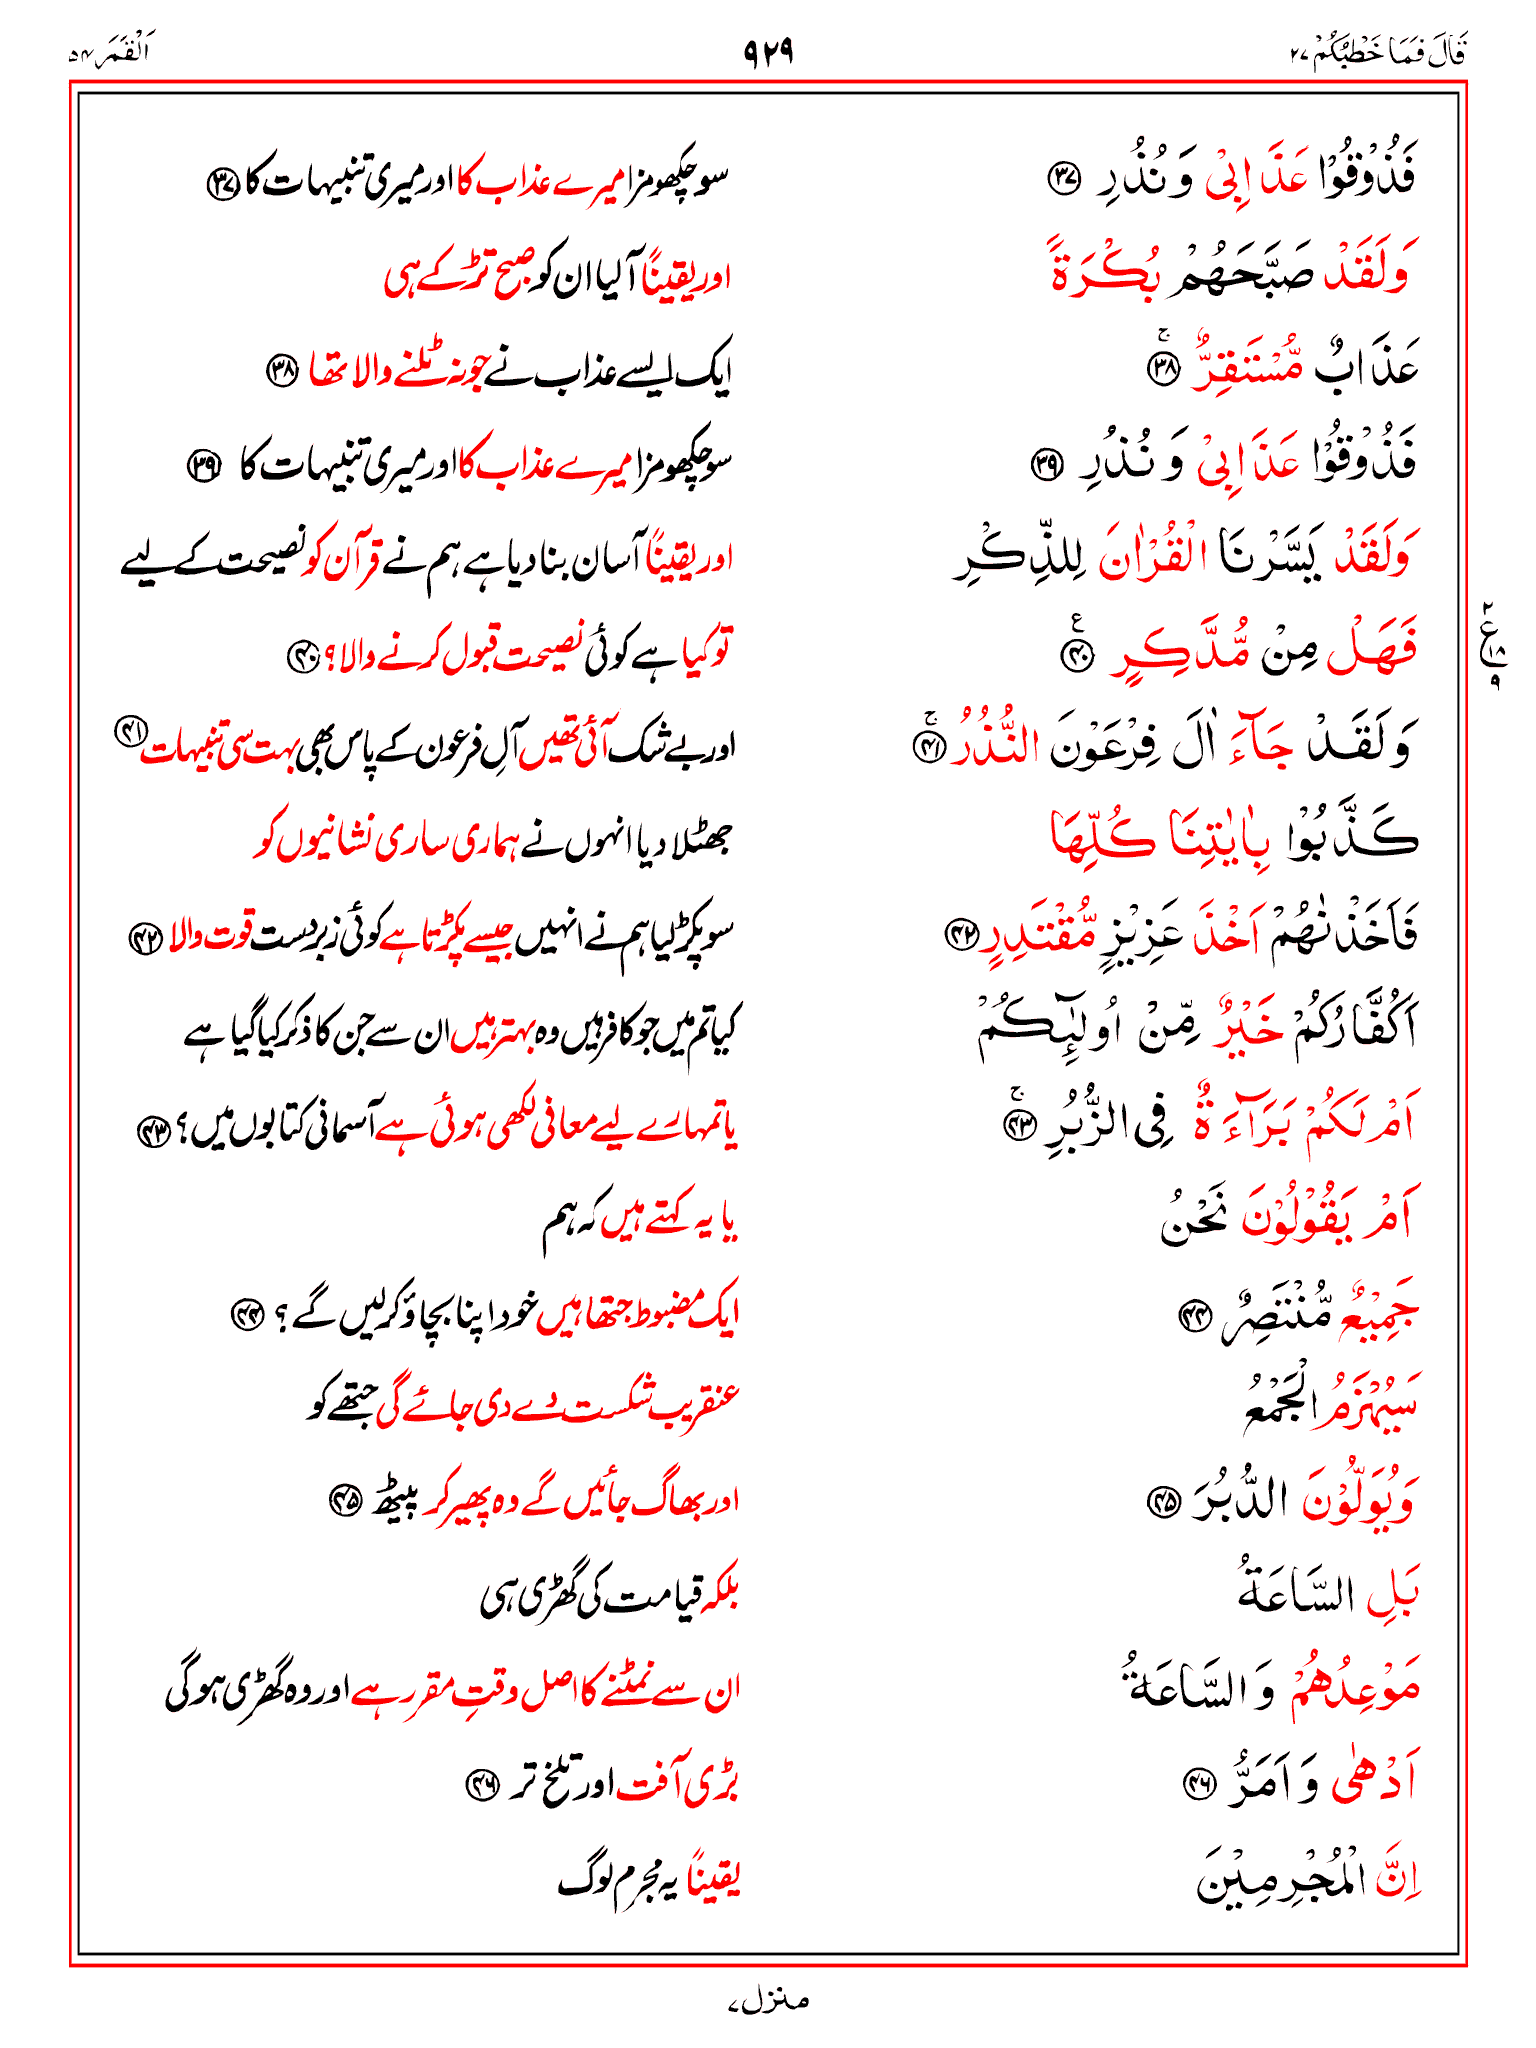 قَالَ فَمَا خَطْبُكُمْ ۲۷ ۹۲۹ اَلْقَمَر ۵۴
فَذُوْقُوْا عَذَابِیْ وَ نُذُرِ ۳۷ سو چکھو مزا میرے عذاب کا اور میری تنبیہات کا ۳۷
وَلَقَدْ صَبَّحَهُمْ بُكْرَةً اور یقیناً آ لیا ان کو صبح تڑکے ہی
عَذَابٌ مُّسْتَقِرٌّ ۚ ۳۸ ایک ایسے عذاب نے جو نہ ٹلنے والا تھا ۳۸
فَذُوْقُوْا عَذَابِیْ وَ نُذُرِ ۳۹ سو چکھو مزا میرے عذاب کا اور میری تنبیہات کا ۳۹
وَلَقَدْ يَسَّرْنَا الْقُرْاٰنَ لِلذِّكْرِ اور یقیناً آسان بنا دیا ہے ہم نے قرآن کو نصیحت کے لیے
فَهَلْ مِنْ مُّدَّكِرٍ ۴۰ ع تو کیا ہے کوئی نصیحت قبول کرنے والا؟ ۴۰
۲ ع ۱۸ ۹
وَلَقَدْ جَآءَ اٰلَ فِرْعَوْنَ النُّذُرُ ۚ ۴۱ اور بے شک آئی تھیں آلِ فرعون کے پاس بھی بہت سی تنبیہات ۴۱
كَذَّبُوْا بِاٰيٰتِنَا كُلِّهَا جھٹلا دیا انہوں نے ہماری ساری نشانیوں کو
فَاَخَذْنٰهُمْ اَخْذَ عَزِيْزٍ مُّقْتَدِرٍ ۴۲ سو پکڑ لیا ہم نے انہیں جیسے پکڑتا ہے کوئی زبردست قوت والا ۴۲
اَكُفَّارُكُمْ خَيْرٌ مِّنْ اُولٰٓئِكُمْ کیا تم میں جو کافر ہیں وہ بہتر ہیں ان سے جن کا ذکر کیا گیا ہے
اَمْ لَكُمْ بَرَآءَةٌ فِی الزُّبُرِ ۚ ۴۳ یا تمہارے لیے معافی لکھی ہوئی ہے آسمانی کتابوں میں؟ ۴۳
اَمْ يَقُوْلُوْنَ نَحْنُ یا یہ کہتے ہیں کہ ہم
جَمِيْعٌ مُّنْتَصِرٌ ۴۴ ایک مضبوط جتھا ہیں خود اپنا بچاؤ کر لیں گے؟ ۴۴
سَيُهْزَمُ الْجَمْعُ عنقریب شکست دے دی جائے گی جتھے کو
وَيُوَلُّوْنَ الدُّبُرَ ۴۵ اور بھاگ جائیں گے وہ پھیر کر پیٹھ ۴۵
بَلِ السَّاعَةُ بلکہ قیامت کی گھڑی ہی
مَوْعِدُهُمْ وَ السَّاعَةُ ان سے نمٹنے کا اصل وقتِ مقرر ہے اور وہ گھڑی ہو گی
اَدْهٰی وَ اَمَرُّ ۴۶ بڑی آفت اور تلخ تر ۴۶
اِنَّ الْمُجْرِمِيْنَ یقیناً یہ مجرم لوگ
منزل ۷